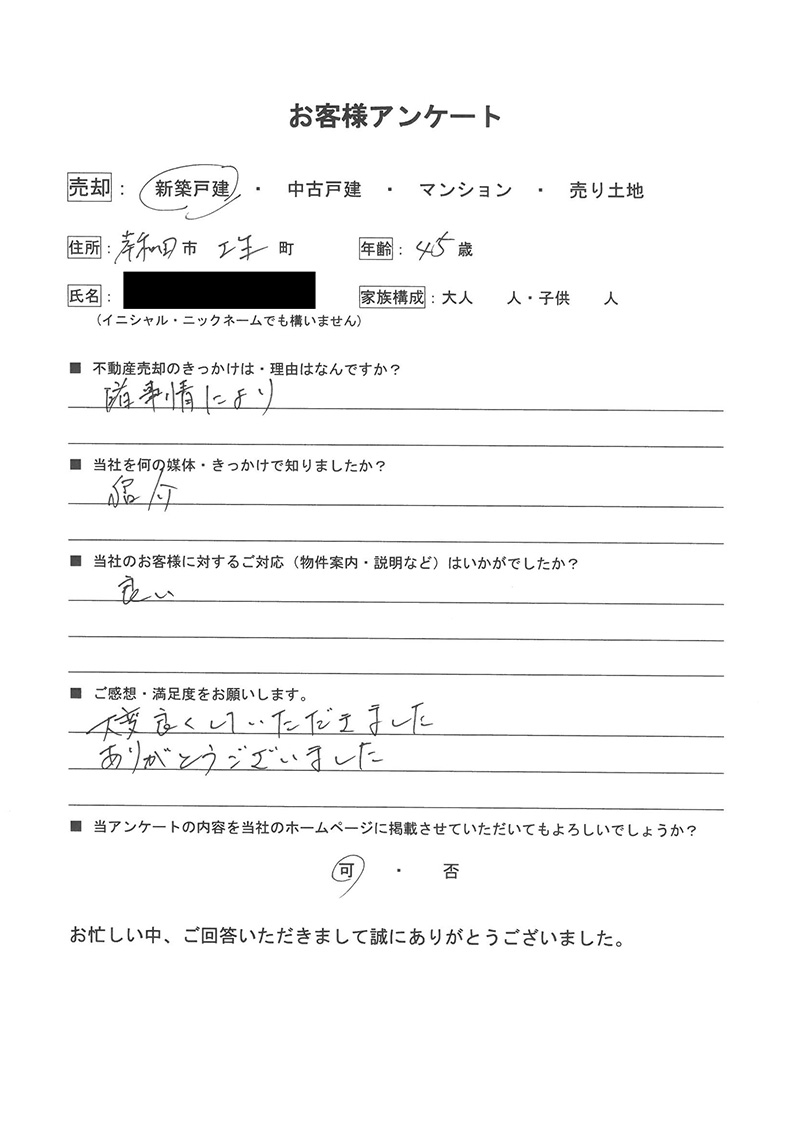 お客様アンケート
売却 : 新築戸建 ・ 中古戸建 ・ マンション ・ 売り土地
住所 : 岸和田 市 土生 町 年齢 : 45 歳
氏名 : 家族構成 : 大人 人・子供 人
(イニシャル・ニックネームでも構いません)
■ 不動産売却のきっかけは・理由はなんですか?
諸事情により
■ 当社を何の媒体・きっかけで知りましたか?
紹介
■ 当社のお客様に対するご対応(物件案内・説明など)はいかがでしたか?
良い
■ ご感想・満足度をお願いします。
大変良くしていただきました
ありがとうございました
■ 当アンケートの内容を当社のホームページに掲載させていただいてもよろしいでしょうか?
可 ・ 否
お忙しい中、ご回答いただきまして誠にありがとうございました。